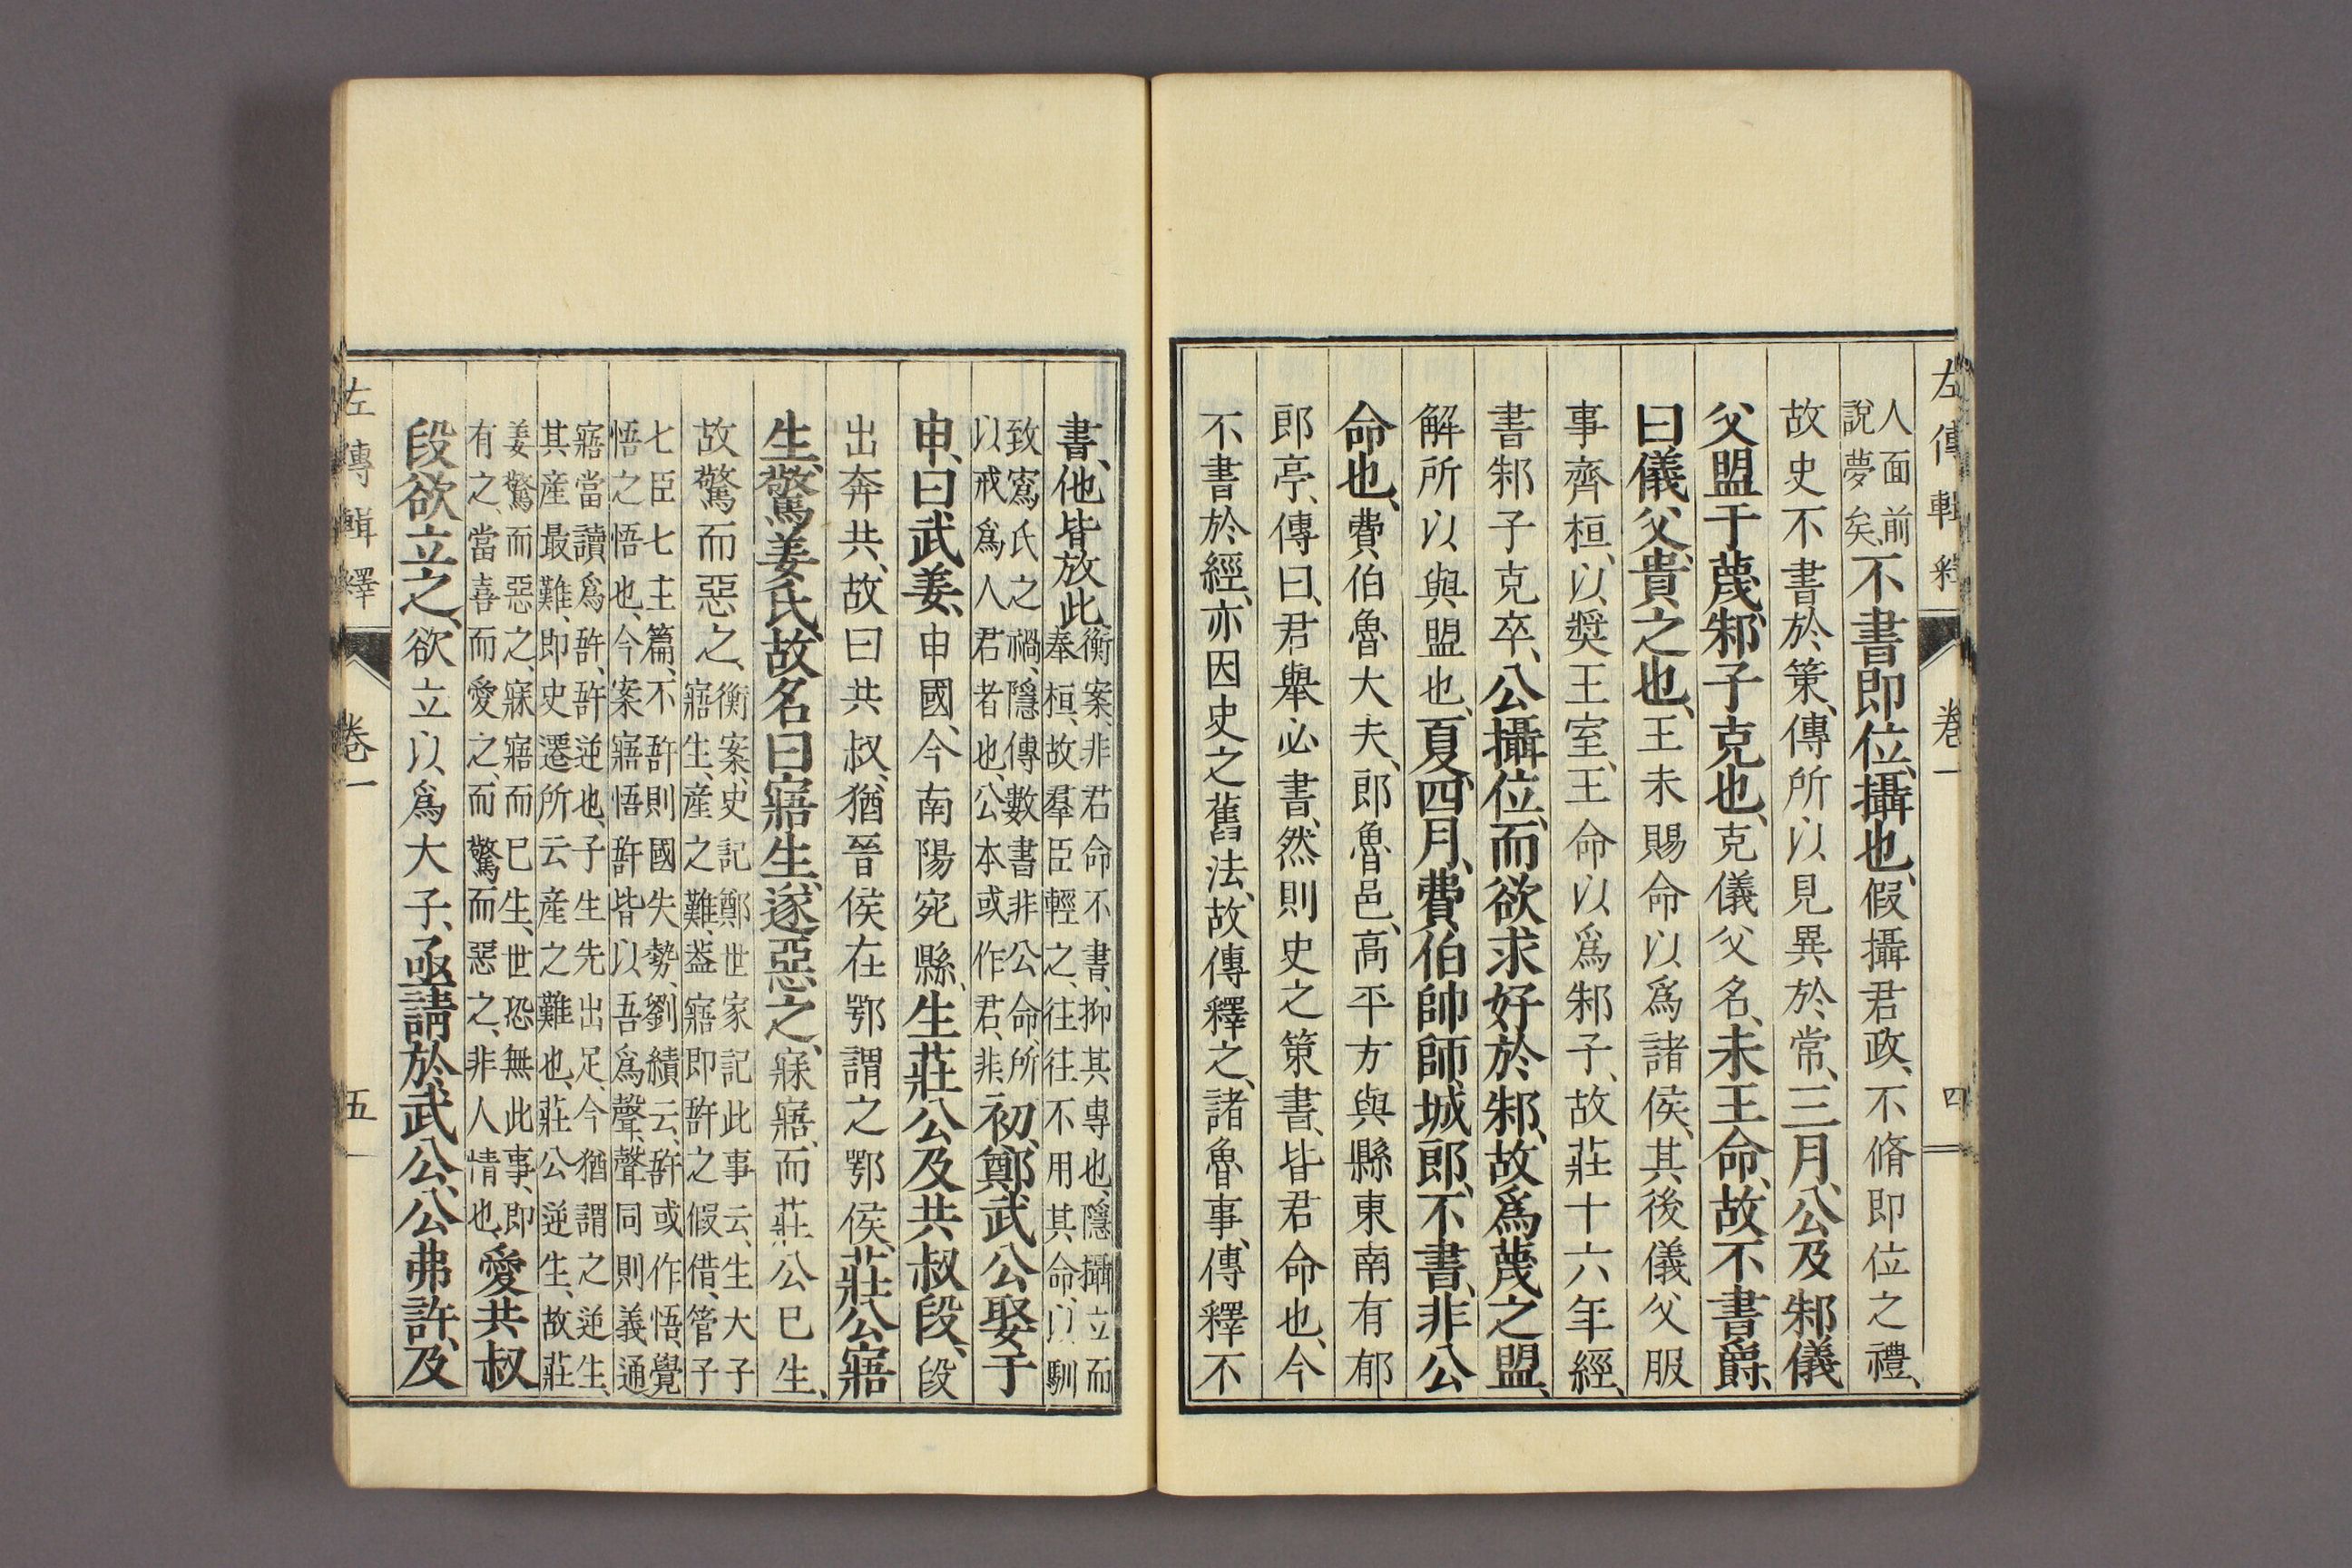 左傳輯釋 卷一 四
人面前
說夢矣、
不書即位、攝也、假攝君政、不脩即位之禮、
故史不書於策、傳所以見異於常、三月、公及邾儀
父盟于蔑、邾子克也、克儀父名、未王命、故不書爵、
曰儀父、貴之也、王未賜命以爲諸侯、其後儀父服
事齊桓、以奬王室、王命以爲邾子、故莊十六年經、
書邾子克卒、公攝位、而欲求好於邾、故爲蔑之盟、
解所以與盟也、夏、四月、費伯帥師城郎、不書、非公
命也、費伯魯大夫、郎魯邑、高平方與縣東南有郁
郎亭、傳曰、君舉必書、然則史之策書、皆君命也、今
不書於經、亦因史之舊法、故傳釋之、諸魯事、傳釋不
書、他皆放此、
衡案、非君命不書、抑其專也、隱攝立而
奉桓、故羣臣輕之、往往不用其命、以馴
致寪氏之禍、隱傳數書非公命、所
以戒爲人君者也、公本或作君、非、
初、鄭武公娶于
申、曰武姜、申國、今南陽宛縣、生莊公及共叔段、段
出奔共、故曰共叔、猶晉侯在鄂謂之鄂侯、莊公寤
生、驚姜氏、故名曰寤生、遂惡之、寐寤、而莊公已生、
故驚而惡之、
衡案、史記鄭世家記此事云、生大子
寤生、產之難、葢寤即䛠之假借、管子
七臣七主篇、不䛠則國失勢、劉績云、䛠或作悟、覺
悟之悟也、今案寤悟䛠皆以吾爲聲、聲同則義通
寤當讀爲䛠、䛠逆也、子生先出足、今猶謂之逆生、
其產最難、即史遷所云產之難也、莊公逆生、故莊
姜驚而惡之、寐寤而已生、世恐無此事、即
有之、當喜而愛之、而驚而惡之、非人情也、
愛共叔
段、欲立之、欲立以爲大子、亟請於武公、公弗許、及
左傳輯釋 卷一 五